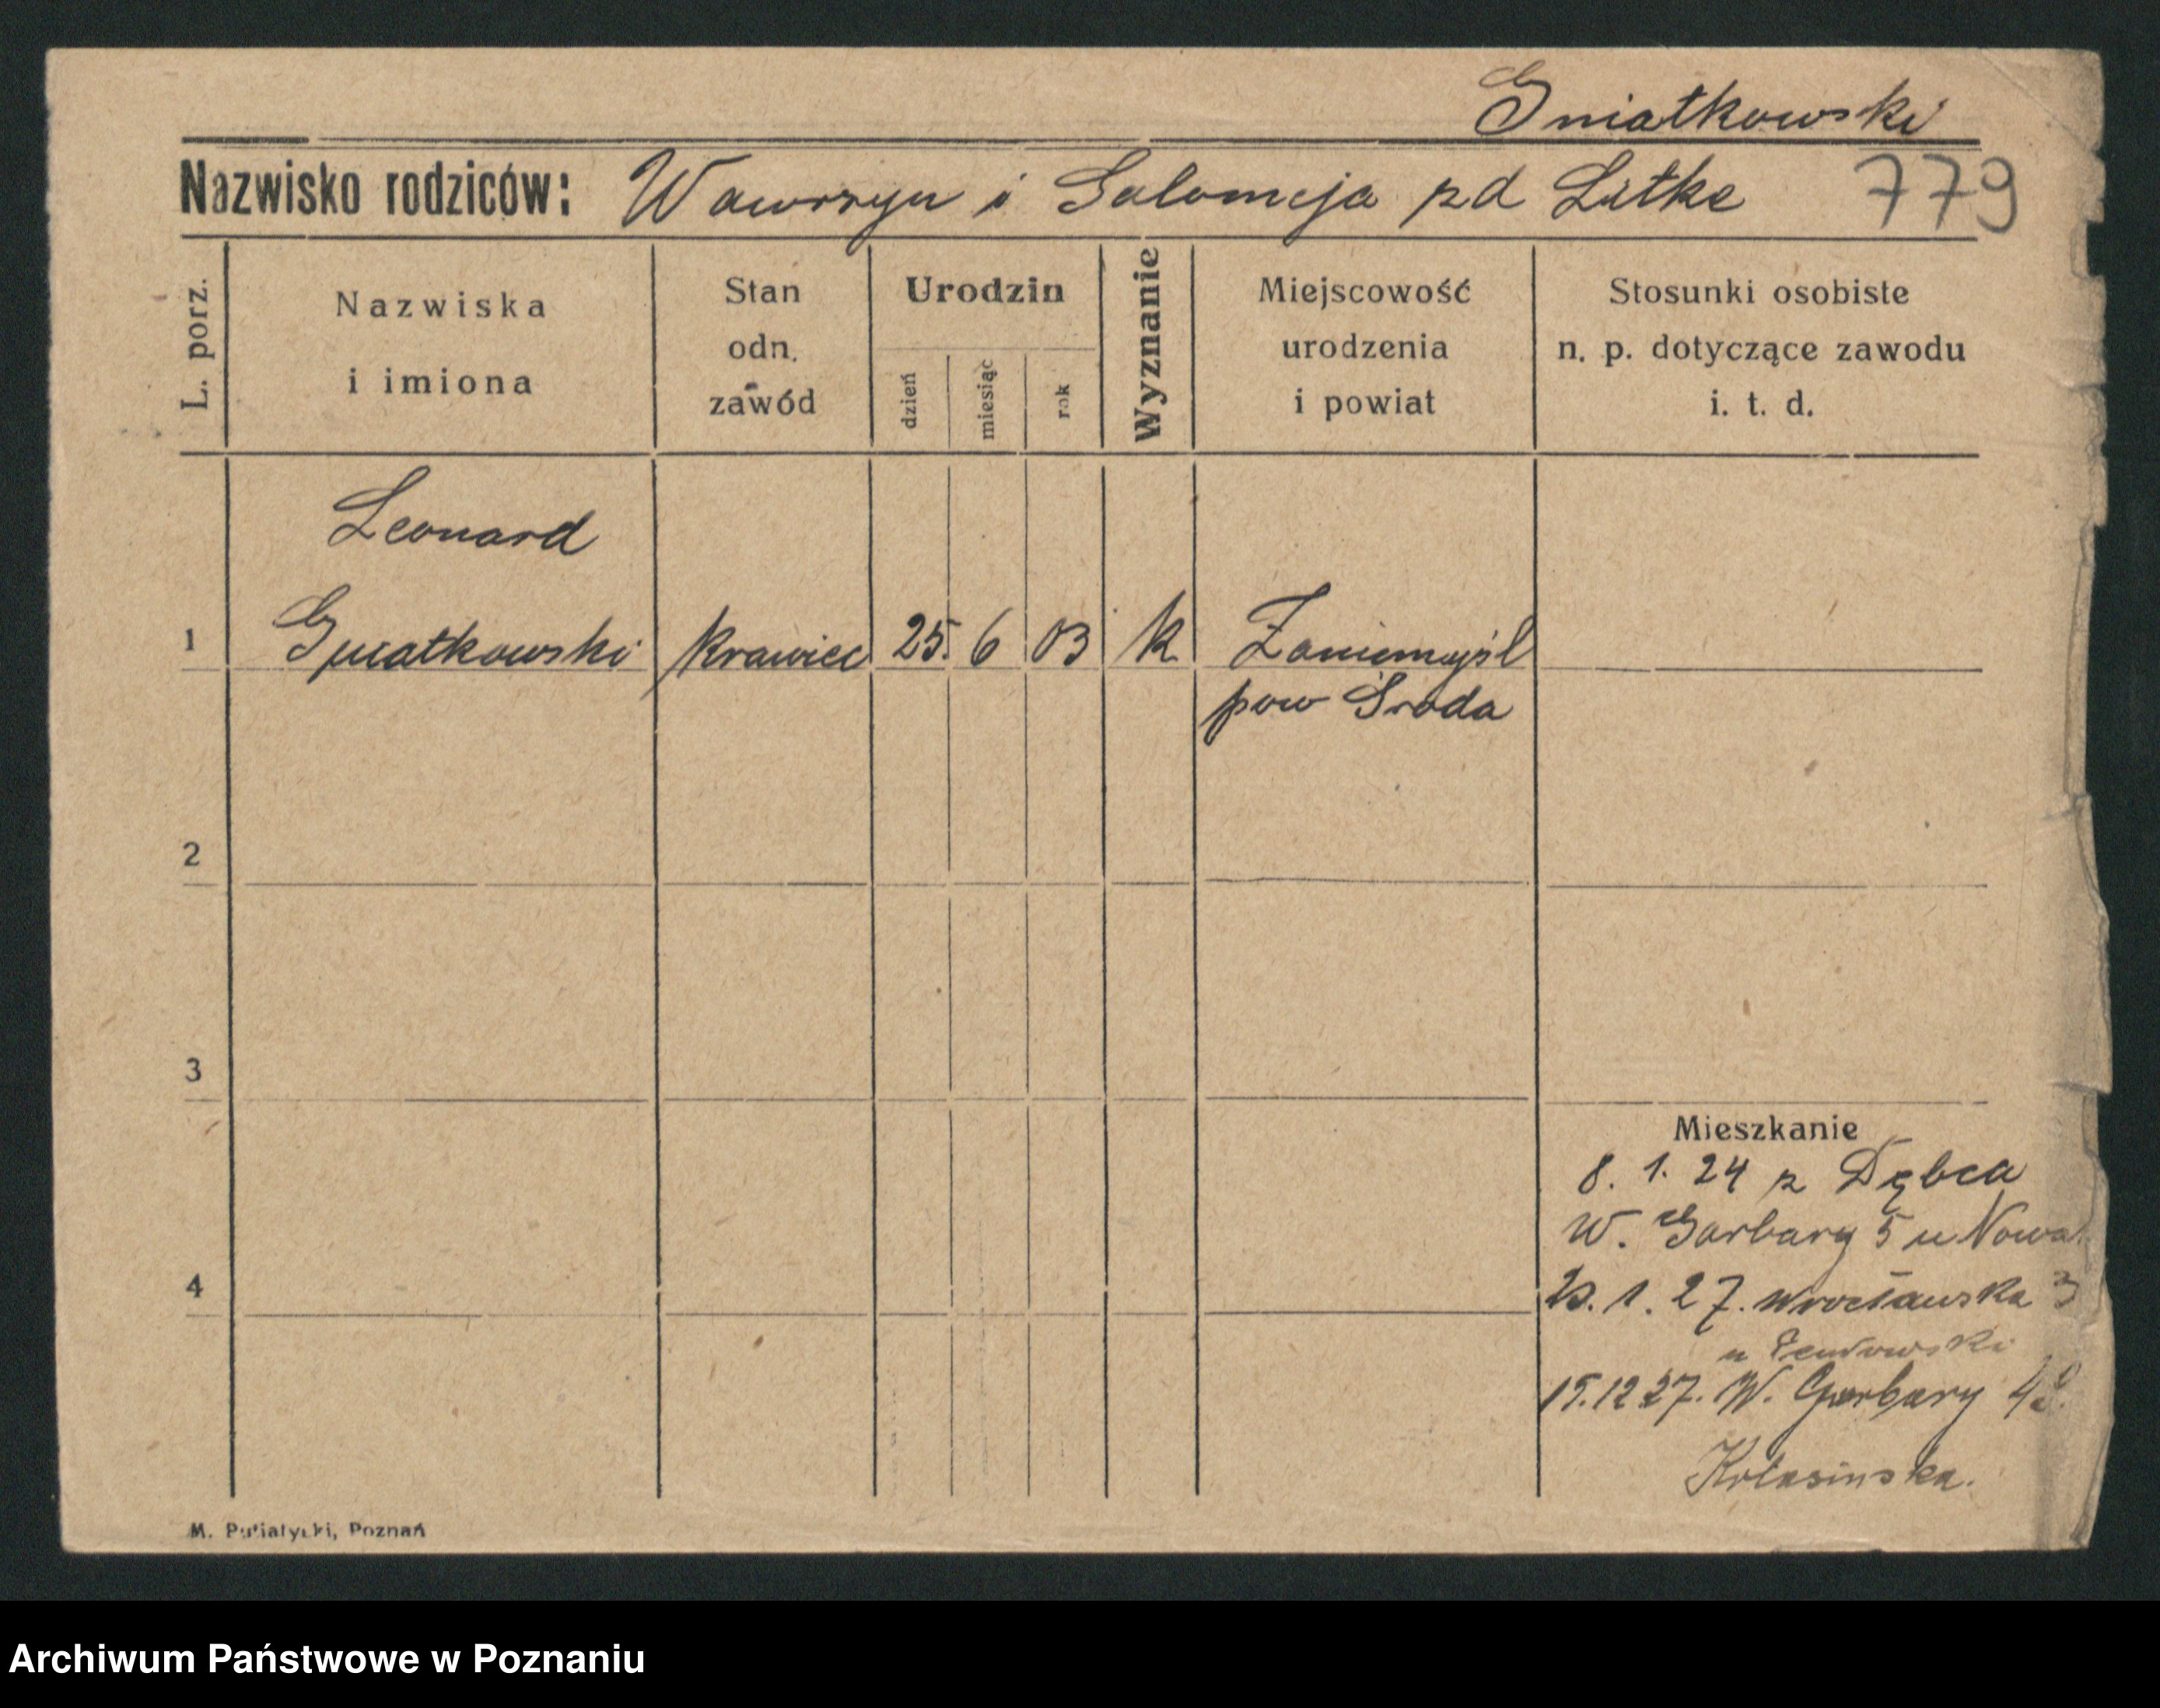 Gniatkowski
Nazwisko rodziców: Wawrzyn i Salomeja zd Litke 779
L. porz.
Nazwiska
i imiona
Stan
odn.
zawód
Urodzin
dzień
miesiąc
rok
Wyznanie
Miejscowość
urodzenia
i powiat
Stosunki osobiste
n. p. dotyczące zawodu
i. t. d.
Leonard
1 Gniatkowski krawiec 25. 6 03 k Zaniemyśl
pow Środa
2
3
Mieszkanie
8. 1. 24 z Dębca
W. Garbary 5 u Nowa
4
1. 27. Wrocławska 3
u
15.12 27. W. Garbary
Kołasinska.
M. Putiatycki, Poznań
Archiwum Państwowe w Poznaniu